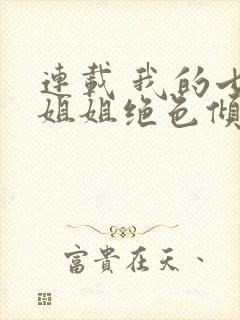 連載 我的七
姐姐绝色傾
富貴在天、